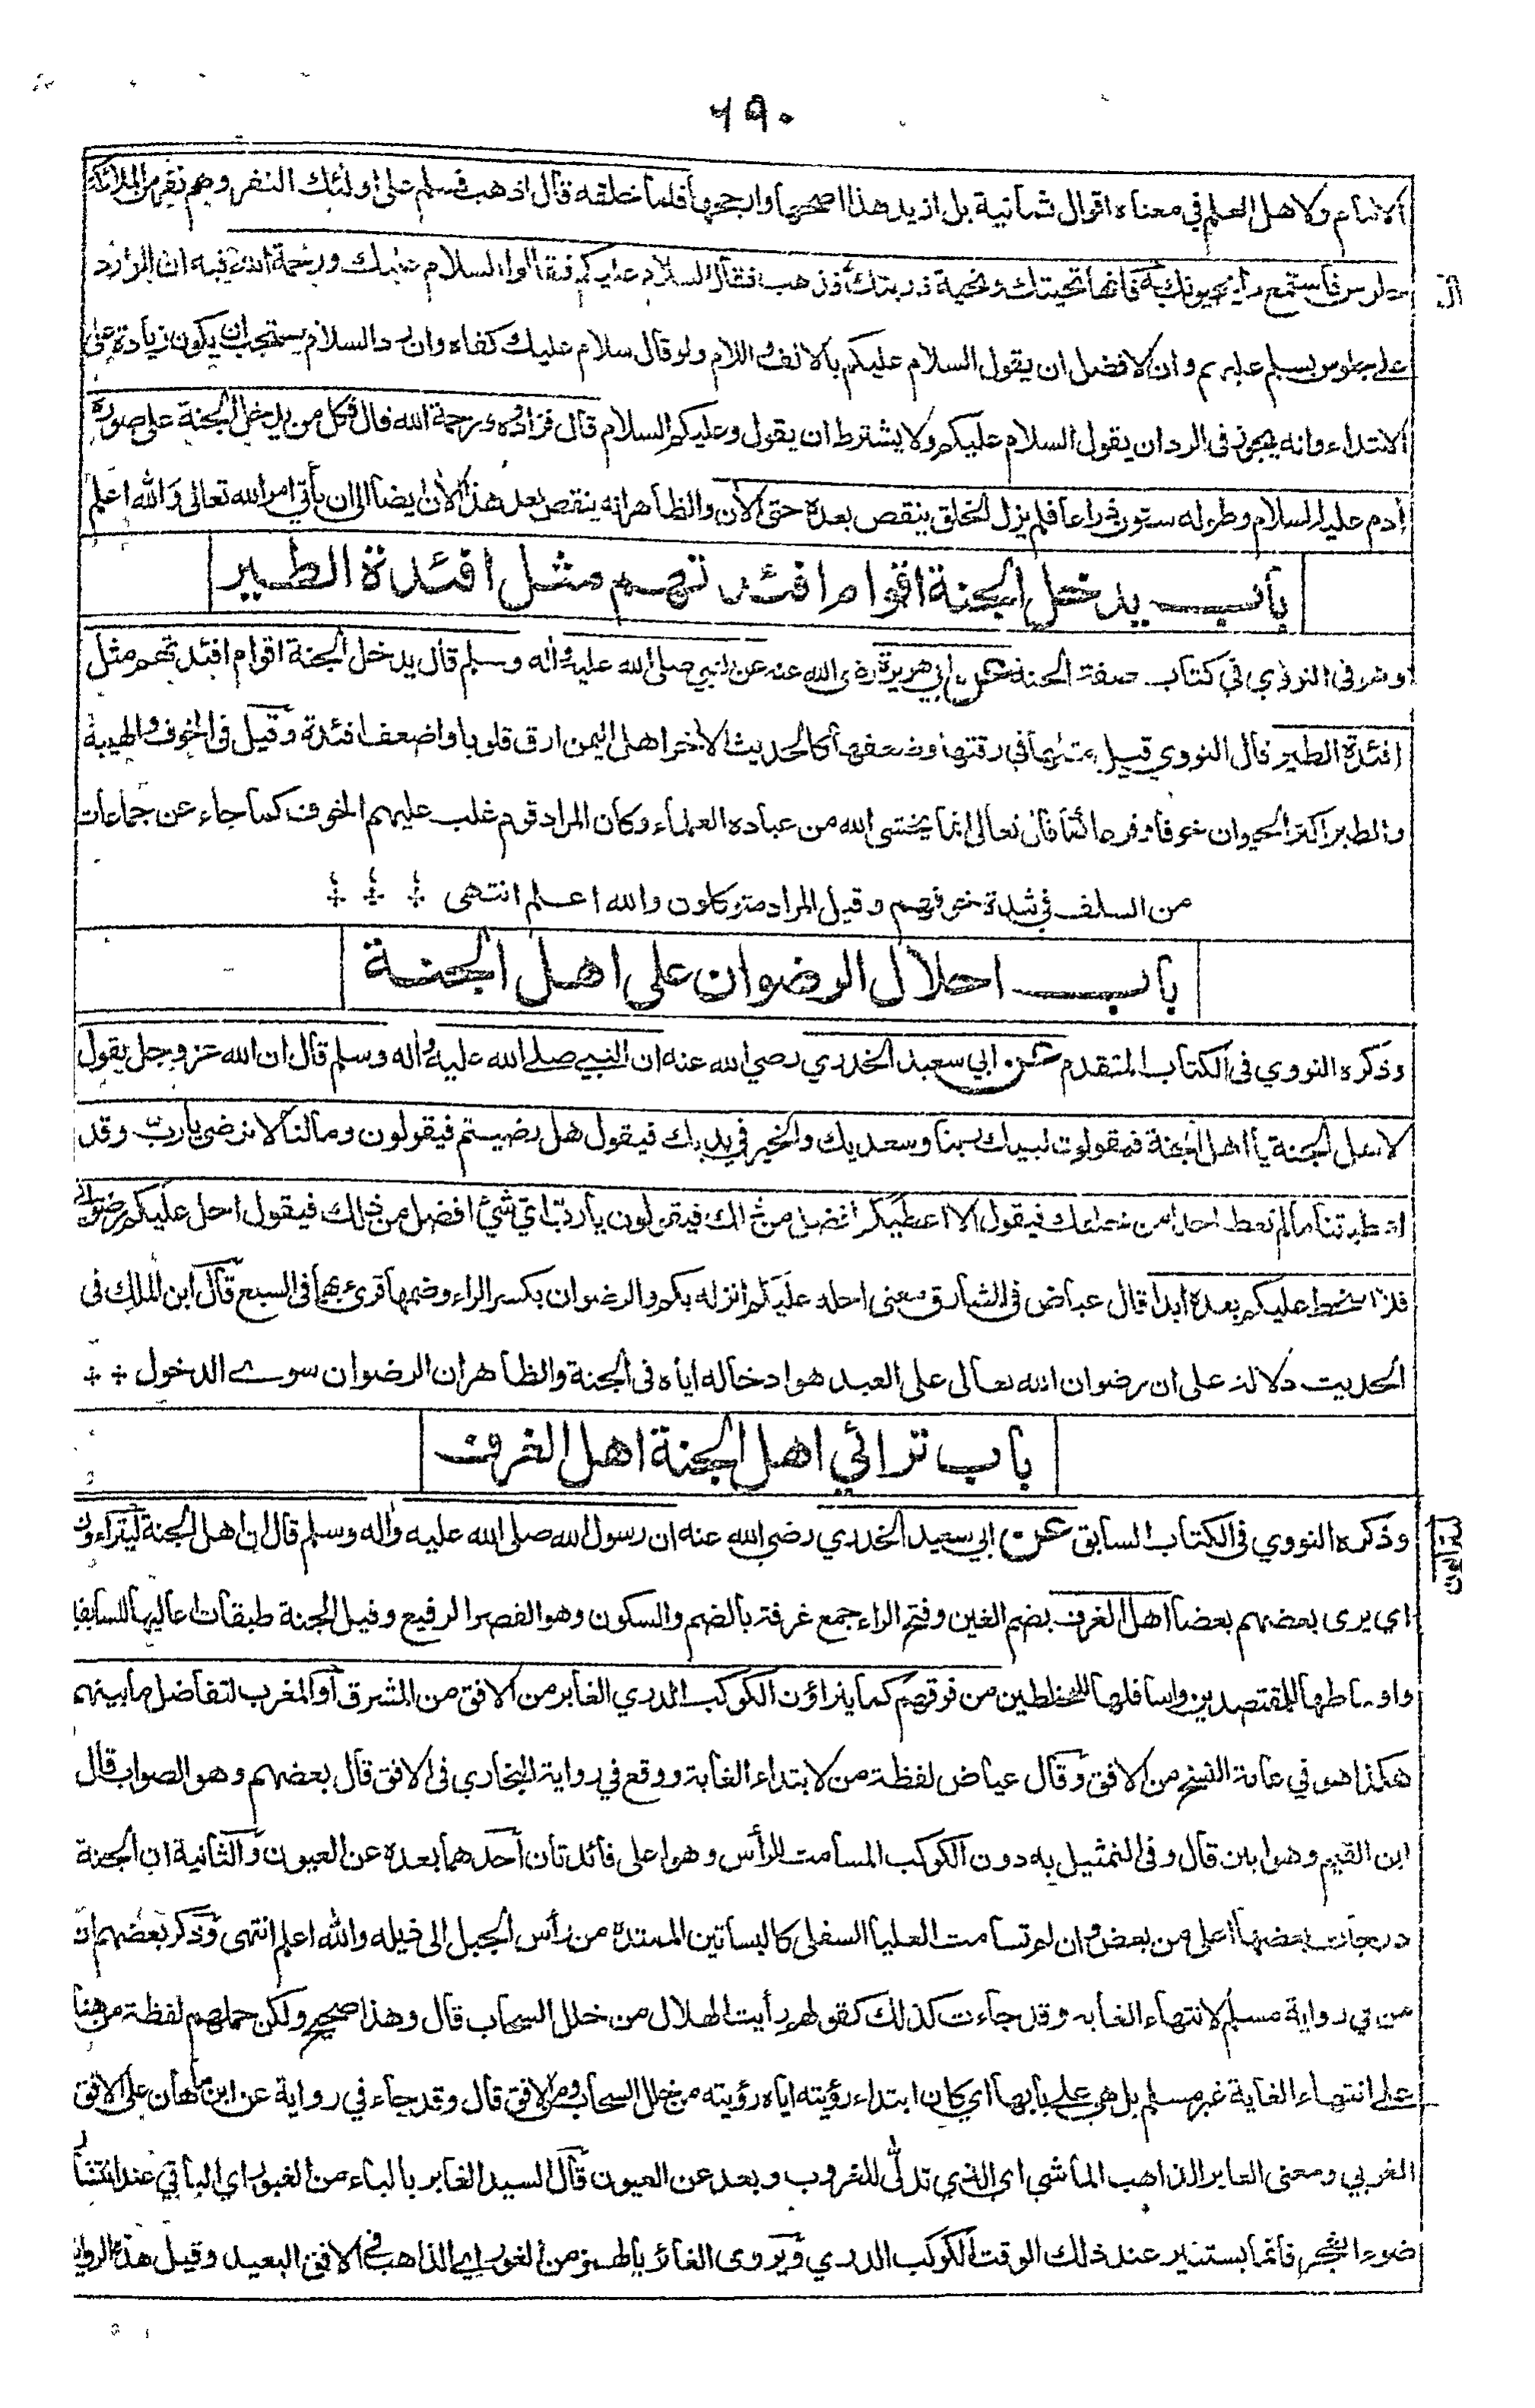 ٦٩٠
الانام ولاهل العلم في معناه اقوال ثمانية بل ازيد هذا اصحها وارجحها فلما خلقه قال اذهب فسلم على اولئك النفر وهم نفر من الملائكة
جلوس فاستمع ما يحيونك به فانها تحيتك وتحية ذريتك فذهب فقال السلام عليكم فقالوا السلام عليك ورحمة الله فيه ان الوارد
على جلوس يسلم عليهم وان الافضل ان يقول السلام عليكم بالالف واللام ولو قال سلام عليك كفاه وان رد السلام يستحب ان يكون زيادة على
الابتداء وانه يجوز في الرد ان يقول السلام عليكم ولا يشترط ان يقول وعليكم السلام قال فزادوه ورحمة الله قال فكل من يدخل الجنة على صورة
ادم عليه السلام وطوله ستون ذراعا فلم يزل الخلق ينقص بعده حتى الآن والظاهر انه ينقص بعد هذا الآن ايضا الى ان يأتي امر الله تعالى والله اعلم
باب يدخل الجنة اقوام افئدتهم مثل افئدة الطير
النووي في كتاب صفة الجنة عن ابي هريرة رضي الله عنه عن النبي صلى الله عليه وآله وسلم قال يدخل الجنة اقوام افئدتهم مثل
افئدة الطير قال النووي قيل مثلها في رقتها وضعفها كالحديث الاخر اهل اليمن ارق قلوبا واضعف افئدة وقيل في الخوف والهيبة
والطير اكثر الحيوان خوفا وفزعا كما قال تعالى انما يخشى الله من عباده العلماء وكأن المراد قوم غلب عليهم الخوف كما جاء عن جماعات
من السلف في شدة خوفهم وقيل المراد متوكلون والله اعلم انتهى
باب احلال الرضوان على اهل الجنة
وذكره النووي في الكتاب المتقدم عن ابي سعيد الخدري رضي الله عنه ان النبي صلى الله عليه وآله وسلم قال ان الله عز وجل يقول
لاهل الجنة يا اهل الجنة فيقولون لبيك ربنا وسعديك والخير في يديك فيقول هل رضيتم فيقولون وما لنا لا نرضى يا رب وقد
اعطيتنا ما لم تعط احدا من خلقك فيقول الا اعطيكم افضل من ذلك فيقولون يا رب اي شيء افضل من ذلك فيقول احل عليكم رضواني
فلا اسخط عليكم بعده ابدا قال عياض في المشارق معنى احله عليكم انزله بكم والرضوان بكسر الراء وضمها قرئ بهما في السبع قال ابن الملك في
الحديث دلالة على ان رضوان الله تعالى على العبد هو ادخاله اياه في الجنة والظاهر ان الرضوان سوى الدخول
باب ترائي اهل الجنة اهل الغرف
وذكره النووي في الكتاب السابق عن ابي سعيد الخدري رضي الله عنه ان رسول الله صلى الله عليه وآله وسلم قال ان اهل الجنة ليتراءون
اي يرى بعضهم بعضا اهل الغرف بضم الغين وفتح الراء جمع غرفة بالضم والسكون وهو القصر الرفيع وقيل الجنة طبقات عاليها للسابقين
واوساطها للمقتصدين واسافلها للمخلطين من فوقهم كما يتراؤن الكوكب الدري الغابر من الافق من المشرق او المغرب لتفاضل ما بينهم
هكذا هو في عامة النسخ من الافق وقال عياض لفظة من لابتداء الغاية ووقع في رواية البخاري في الافق قال بعضهم وهو الصواب قال
ابن القيم وهو ابين قال وفي التمثيل به دون الكوكب المسامت للرأس وهو اعلى فائدتان احدهما بعده عن العيون والثانية ان الجنة
درجات بعضها اعلى من بعض وان لم تسامت العليا السفلى كالبساتين الممتدة من رأس الجبل الى ذيله والله اعلم انتهى وذكر بعضهم ان
من في رواية مسلم لانتهاء الغاية وقد جاءت كذلك كقولهم رأيت الهلال من خلل السحاب قال وهذا صحيح ولكن حملهم لفظة من هنا
على انتهاء الغاية غير مسلم بل هي على بابها اي كان ابتداء رؤيته اياه رؤيته من خلل السحاب ومن الافق قال وقد جاء في رواية عن ابن ماهان على الافق
الغربي ومعنى الغابر الذاهب الماشي اي الذي تدلى للغروب وبعد عن العيون قال السيد الغابر بالباء من الغبور اي الباقي عند انتشار
ضوء الفجر فانما يستنير عند ذلك الوقت الكوكب الدري ويروى الغائر بالهمز من الغور اي الذاهب في الافق البعيد وقيل هذه الرواية